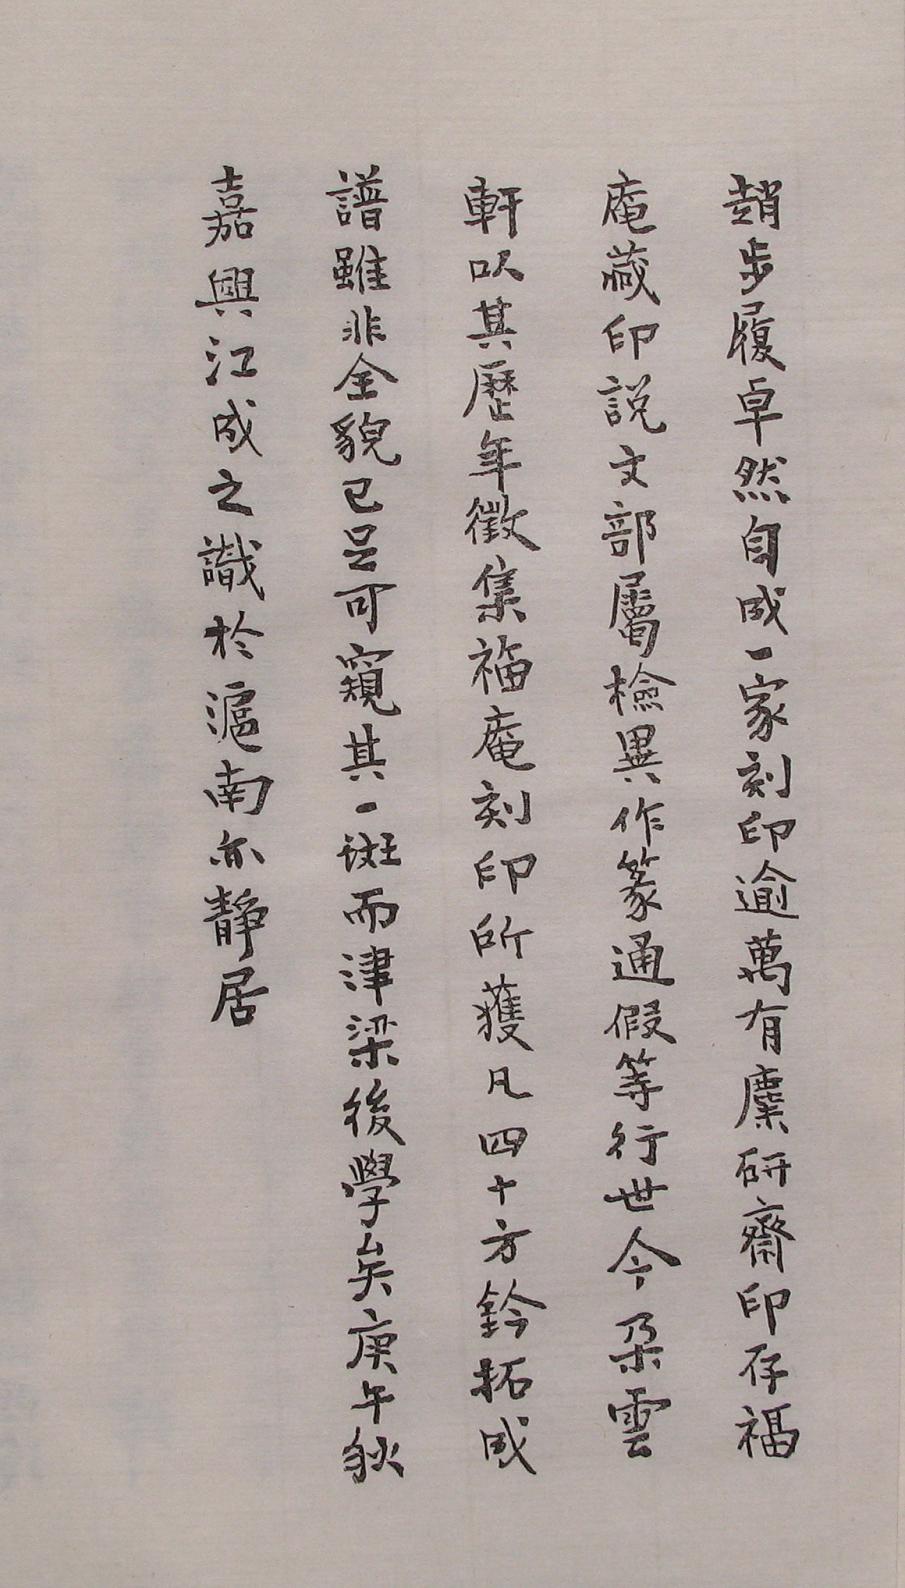 趙步履卓然自成一家刻印逾萬有麋研齋印存福
庵藏印說文部屬檢異作篆通假等行世今朵雲
軒以其歷年徵集福庵刻印所獲凡四十方鈐拓成
譜雖非全貌已足可窺其一斑而津梁後學矣庚午秋
嘉興江成之識於滬南亦靜居